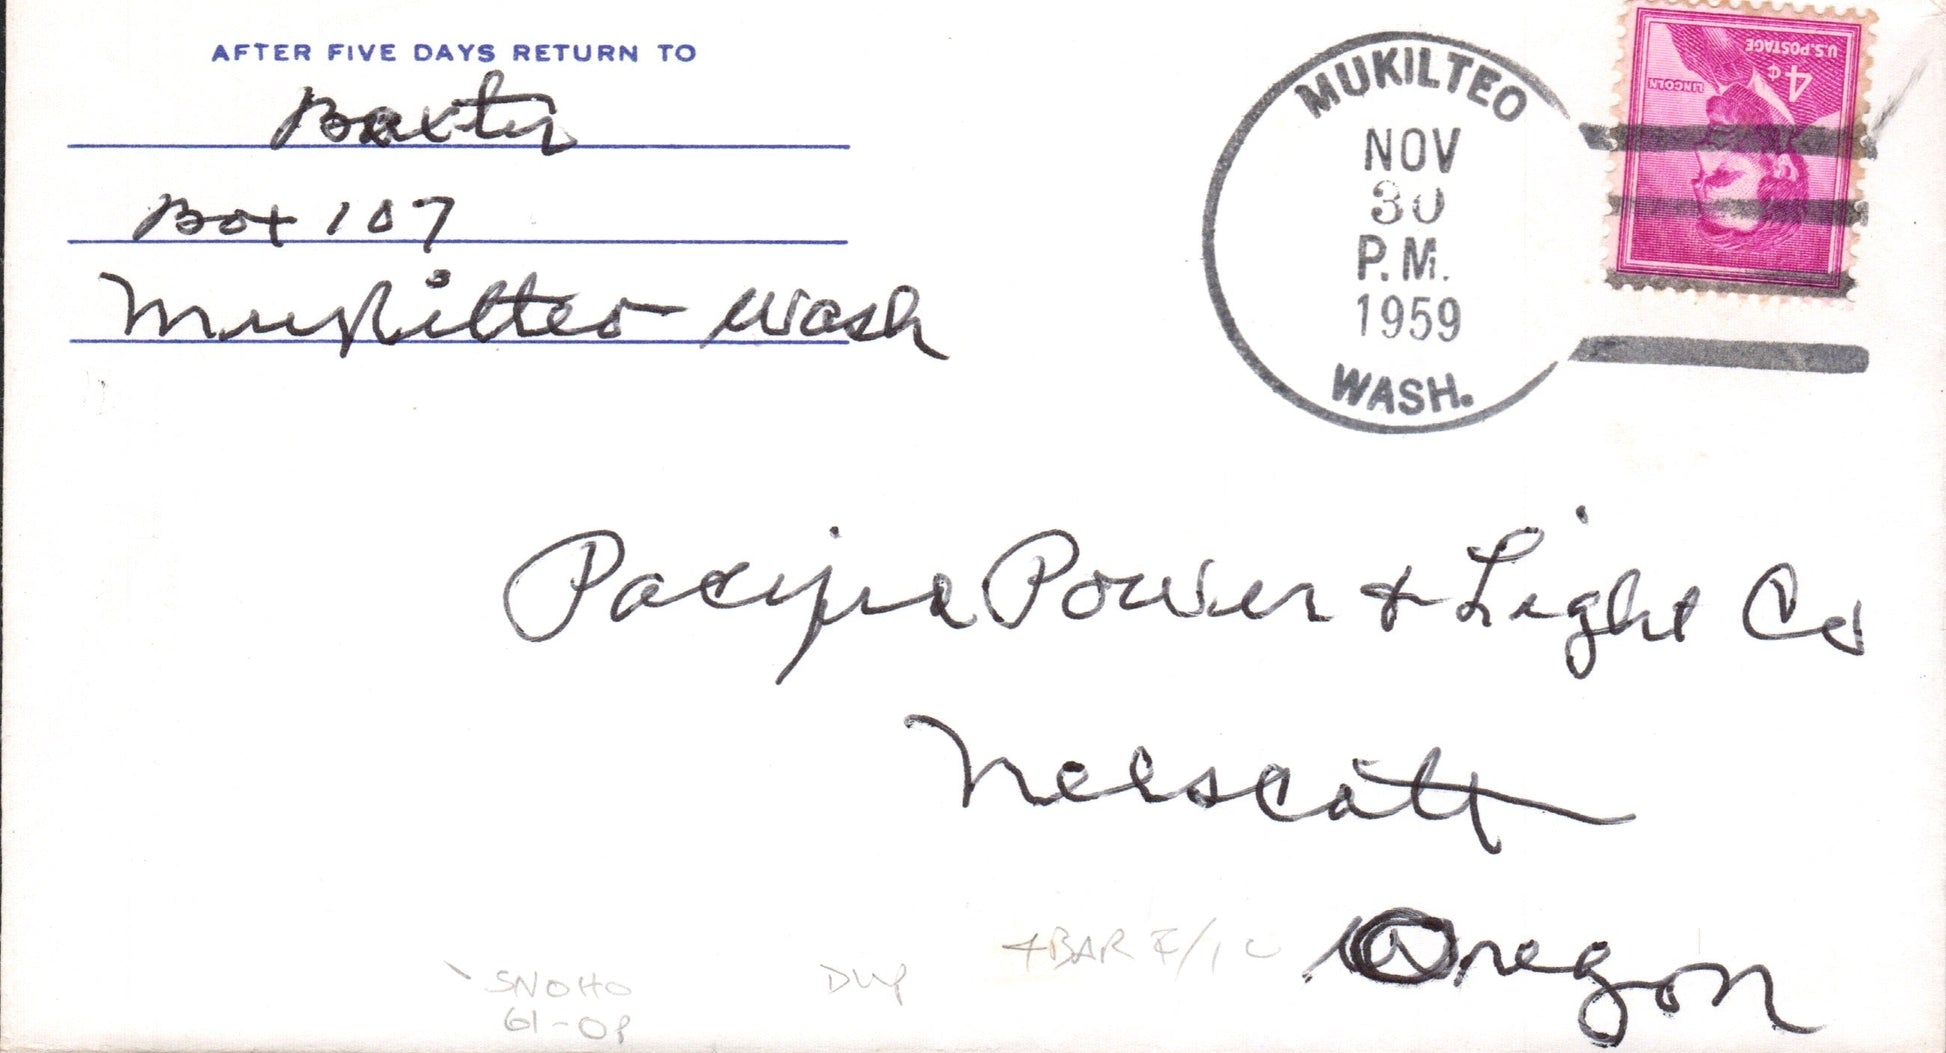 AFTER FIVE DAYS RETURN TO
Baxter
Box 107
Mukilteo Wash
MUKILTEO
NOV
30
P.M.
1959
WASH.
U.S. POSTAGE
4¢
LINCOLN
Pacific Power & Light Co
Nelscott
Oregon
4BAR F/1
SNOHO
61-OP